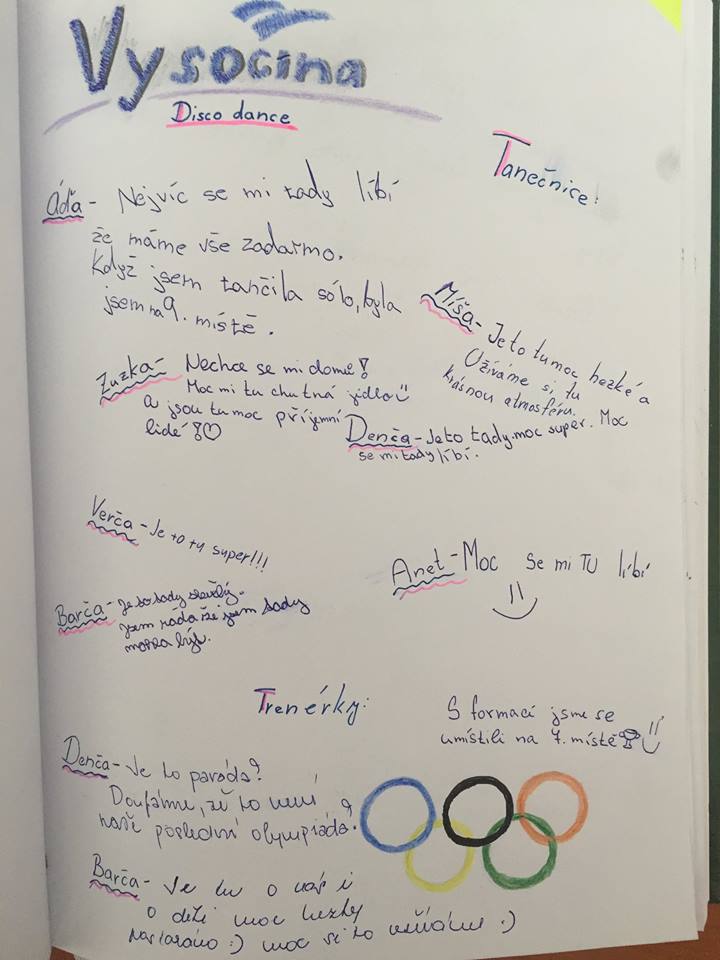 Vysočina
Disco dance
Tanečnice:
Áďa- Nejvíc se mi tady líbí
že máme vše zadarmo.
Když jsem tančila sólo, byla
jsem na 9. místě.
Míša- Je to tu moc hezké a
Užíváme si tu
krásnou atmosféru.
Zuzka- Nechce se mi domů!
Moc mi tu chutná jídlo
a jsou tu moc příjemní
lidé !♡
Denča- Je to tady moc super. Moc
se mi tady líbí.
Verča- Je to tu super!!!
Anet- Moc se mi TU líbí
Barča- Je to tady skvělý.
Jsem ráda že jsem tady
mohla být.
Trenérky:
S formací jsme se
umístili na 7. místě
Denča- Je to paráda!
Doufáme, že to není
naše poslední olympiáda!
Barča- Je tu o nás i
o děti moc hezky
postaráno :) moc si to užíváme :)